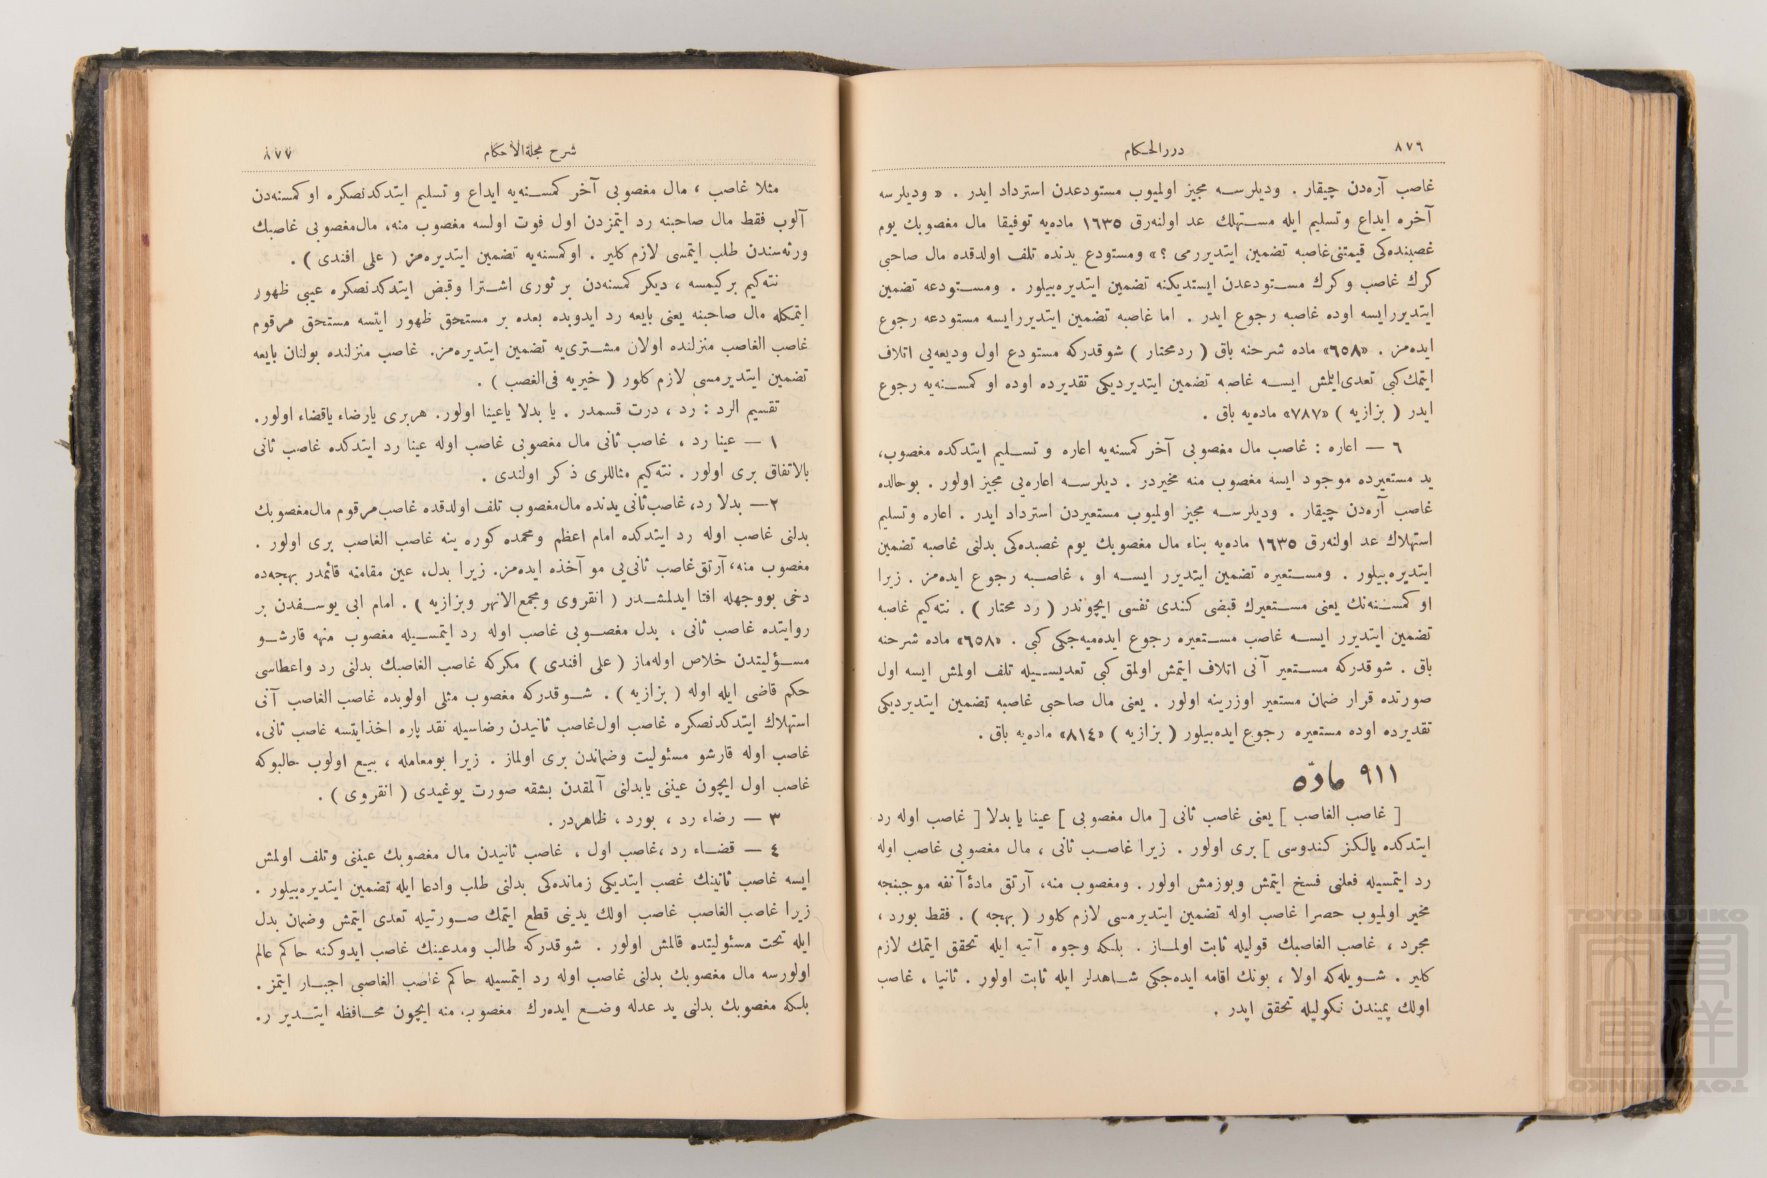 ٨٧٦
دررالحكام
غاصب آره‌دن چيقار . وديلرسه مجيز اولميوب مستودعدن استرداد ايدر . « وديلرسه
آخره ايداع وتسليم ايله مستهلك عد اولنه‌رق ١٦٣٥ ماده‌يه توفيقا مال مغصوبك يوم
غصبنده‌كى قيمتنى غاصبه تضمين ايتديررمى ؟» ومستودع يدنده تلف اولدقده مال صاحبى
كرك غاصب وكرك مستودعدن ايستديكنه تضمين ايتديره‌بيلور . ومستودعه تضمين
ايتديررايسه اوده غاصبه رجوع ايدر . اما غاصبه تضمين ايتديررايسه مستودعه رجوع
ايده‌مز . «٦٥٨» ماده شرحنه باق ( ردمحتار ) شوقدركه مستودع اول وديعه‌يى اتلاف
ايتمك‌كبى تعدى‌ايلمش ايسه غاصبه تضمين ايتديرديكى تقديرده اوده او كمسنه‌يه رجوع
ايدر ( بزازيه ) «٧٨٧» ماده‌يه باق .
٦ — اعاره : غاصب مال مغصوبى آخر كمسنه‌يه اعاره و تسليم ايتدكده مغصوب،
يد مستعيرده موجود ايسه مغصوب منه مخيردر . ديلرسه اعاره‌يى مجيز اولور . بوحالده
غاصب آره‌دن چيقار . وديلرسه مجيز اولميوب مستعيردن استرداد ايدر . اعاره وتسليم
استهلاك عد اولنه‌رق ١٦٣٥ ماده‌يه بناء مال مغصوبك يوم غصبده‌كى بدلنى غاصبه تضمين
ايتديره‌بيلور . ومستعيره تضمين ايتديرر ايسه او ، غاصبه رجوع ايده‌مز . زيرا
او كمسنه‌نك يعنى مستعيرك قبضى كندى نفسى ايچوندر ( رد محتار ) . نته‌كيم غاصبه
تضمين ايتديرر ايسه غاصب مستعيره رجوع ايده‌ميه‌جكى كبى . «٦٥٨» ماده شرحنه
باق . شوقدركه مستعير آنى اتلاف ايتمش اولمق كبى تعديسيله تلف اولمش ايسه اول
صورتده قرار ضمان مستعير اوزرينه اولور . يعنى مال صاحبى غاصبه تضمين ايتديرديكى
تقديرده اوده مستعيره رجوع ايده‌بيلور ( بزازيه ) «٨١٤» ماده‌يه باق .
٩١١ ماده
[ غاصب الغاصب ] يعنى غاصب ثانى [ مال مغصوبى ] عينا يا بدلا [ غاصب اوله رد
ايتدكده يالكز كندوسى ] برى اولور . زيرا غاصب ثانى ، مال مغصوبى غاصب اوله
رد ايتمسيله فعلنى فسخ ايتمش وبوزمش اولور . ومغصوب منه، آرتق مادۀ آنفه موجبنجه
مخير اولميوب حصرا غاصب اوله تضمين ايتديرمسى لازم كلور ( بهجه ) . فقط بورد ،
مجرد ، غاصب الغاصبك قوليله ثابت اولماز . بلكه وجوه آتيه ايله تحقق ايتمك لازم
كلير . شويله‌كه اولا ، بونك اقامه ايده‌جكى شاهدلر ايله ثابت اولور . ثانيا ، غاصب
اولك يميندن نكوليله تحقق ايدر .
شرح مجلةالاحكام
٨٧٧
مثلا غاصب ، مال مغصوبى آخر كمسنه‌يه ايداع و تسليم ايتدكدنصكره او كمسنه‌دن
آلوب فقط مال صاحبنه رد ايتمزدن اول فوت اولسه مغصوب منه، مال‌مغصوبى غاصبك
ورثه‌سندن طلب ايتمسى لازم كلير . اوكمسنه‌يه تضمين ايتديره‌مز ( على افندى ) .
نته‌كيم بركيمسه ، ديكر كمسنه‌دن بر ثورى اشترا وقبض ايتدكدنصكره عيبى ظهور
ايتمكله مال صاحبنه يعنى بايعه رد ايدوبده بعده بر مستحق ظهور ايتسه مستحق مرقوم
غاصب الغاصب منزلنده اولان مشترى‌يه تضمين ايتديره‌مز. غاصب منزلنده بولنان بايعه
تضمين ايتديرمسى لازم كلور ( خيريه فى‌الغصب ) .
تقسيم الرد : رد ، درت قسمدر . يا بدلا ياعينا اولور. هربرى يارضاء ياقضاء اولور.
١ — عينا رد ، غاصب ثانى مال مغصوبى غاصب اوله عينا رد ايتدكده غاصب ثانى
بالاتفاق برى اولور . نته‌كيم مثاللرى ذكر اولندى .
٢— بدلا رد، غاصب‌ثانى يدنده مال‌مغصوب تلف اولدقده غاصب‌مرقوم مال‌مغصوبك
بدلنى غاصب اوله رد ايتدكده امام اعظم ومحمده كوره ينه غاصب الغاصب برى اولور .
مغصوب منه، آرتق غاصب ثانى‌يى مو آخذه ايده‌مز. زيرا بدل، عين مقامنه قائمدر بهجه‌ده
دخى بووجهله افتا ايدلمشدر ( انقروى ومجمع‌الانهر وبزازيه ) . امام ابى يوسفدن بر
روايتده غاصب ثانى ، بدل مغصوبى غاصب اوله رد ايتمسيله مغصوب منهه قارشو
مسؤليتدن خلاص اوله‌ماز ( على افندى ) مكركه غاصب الغاصبك بدلنى رد واعطاسى
حكم قاضى ايله اوله ( بزازيه ) . شوقدركه مغصوب مثلى اولوبده غاصب الغاصب آنى
استهلاك ايتدكدنصكره غاصب اول‌غاصب ثانيدن رضاسيله نقد پاره اخذايتسه غاصب ثانى،
غاصب اوله قارشو مسئوليت وضماندن برى اولماز . زيرا بومعامله ، بيع اولوب حالبوكه
غاصب اول ايچون عيننى يابدلنى آلمقدن بشقه صورت يوغيدى ( انقروى ) .
٣ — رضاء رد ، بورد ، ظاهردر .
٤ — قضاء رد ،غاصب اول ، غاصب ثانيدن مال مغصوبك عيننى وتلف اولمش
ايسه غاصب ثانينك غصب ايتديكى زمانده‌كى بدلنى طلب وادعا ايله تضمين ايتديره‌بيلور .
زيرا غاصب الغاصب غاصب اولك يدينى قطع ايتمك صورتيله تعدى ايتمش وضمان بدل
ايله تحت مسئوليتده قالمش اولور . شوقدركه طالب ومدعينك غاصب ايدوكنه حاكم عالم
اولورسه مال مغصوبك بدلنى غاصب اوله رد ايتمسيله حاكم غاصب الغاصبى اجبار ايتمز .
بلكه مغصوبك بدلنى يد عدله وضع ايده‌رك مغصوب منه ايچون محافظه ايتديرر.
TOYO BUNKO
東洋文庫
TOYO BUNKO